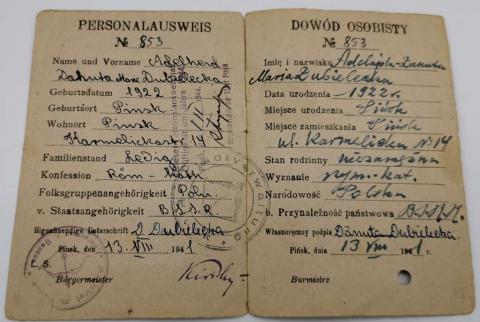 PERSONALAUSWEIS
№ 853
Name und Vorname Adelheid
Danuta Marie Dubielecka
Geburtsdatum 1922
Geburtsort Pinsk
Wohnort Pinsk
Karmelickastr. 14
Familienstand Ledig
Konfession Röm-Kath
Volksgruppenangehörigkeit Poln.
v. Staatsangehörigkeit BSSR
Eigenhändige Unterschrift D. Dubielecka
Pinsk, den 13 VIII 1941
L. S.
Bürgermeister
DOWÓD OSOBISTY
№ 853
Imię i nazwisko Adelajda-Danuta
Maria Dubielecka
Data urodzenia 1922 r.
Miejsce urodzenia Pińsk
Miejsce zamieszkania Pińsk
ul. Karmelicka № 14
Stan rodzinny niezamężna
Wyznanie rzym.-kat.
Narodowość Polska
b. Przynależność państwowa
Własnoręczny podpis Danuta Dubielecka
Pińsk, dnia 13 VIII 1941 r.
Burmistrz